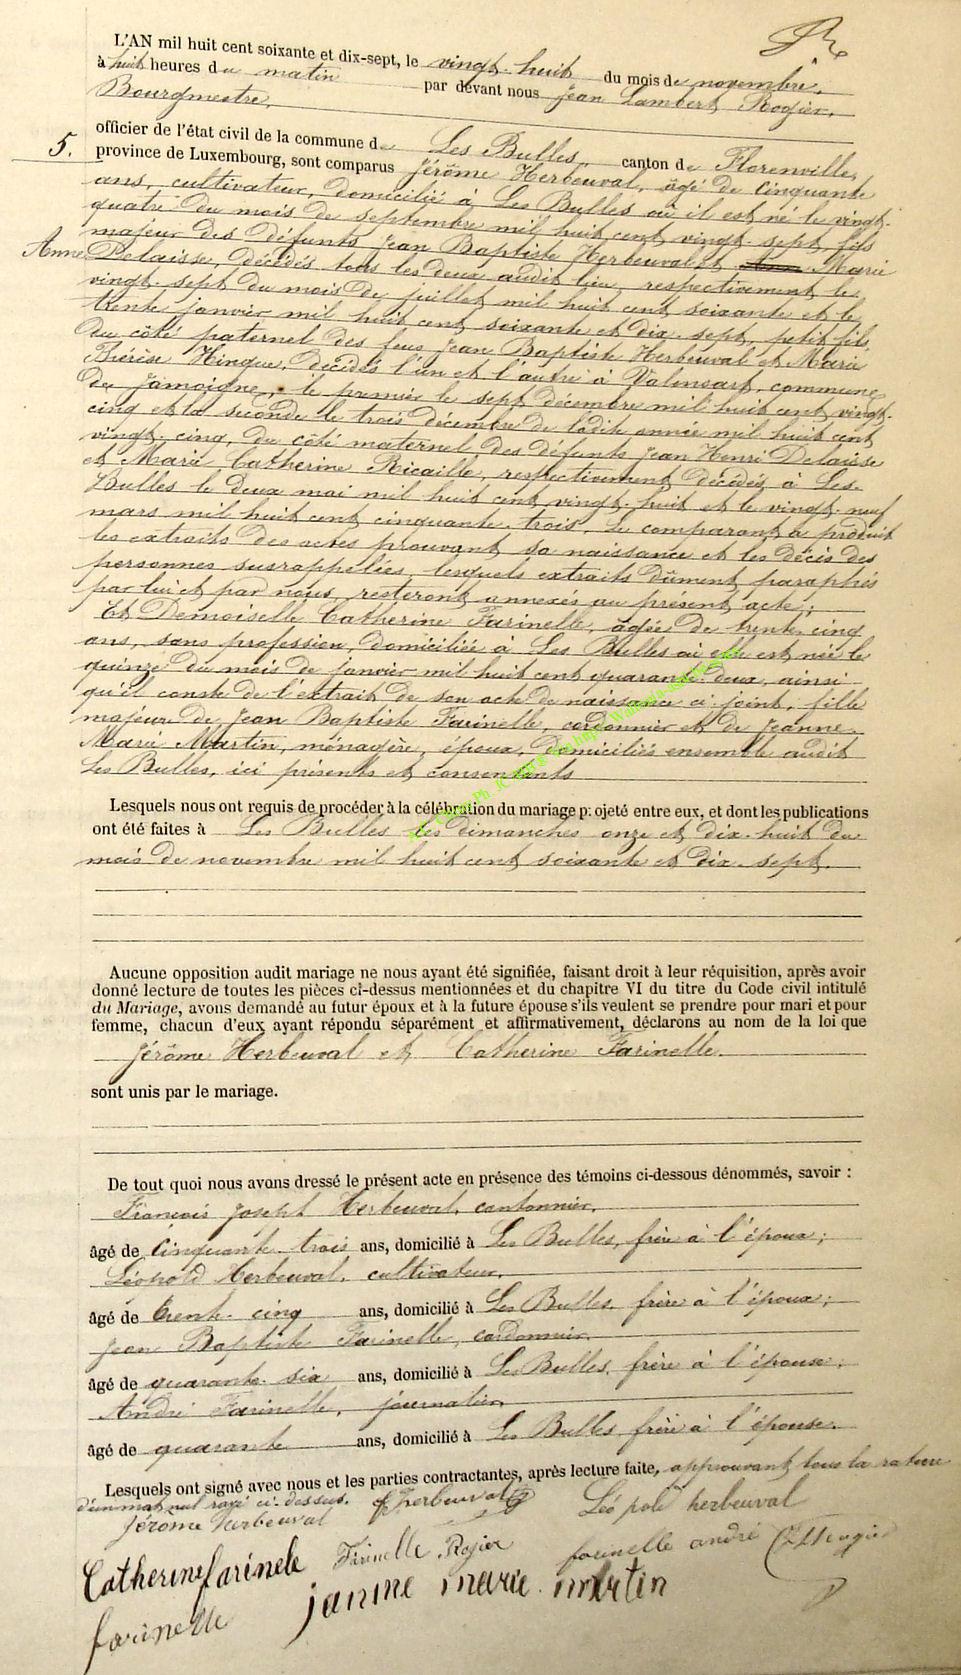 L'AN mil huit cent soixante et dix-sept, le vingt-huit du mois de novembre,
à huit heures du matin par devant nous Jean Lambert Rogier,
Bourgmestre,
officier de l'état civil de la commune de Les Bulles, canton de Florenville,
5.
province de Luxembourg, sont comparus Jérôme Herbeuval, âgé de cinquante
ans, cultivateur, domicilié à Les Bulles où il est né le vingt-
quatre du mois de septembre mil huit cent vingt-sept, fils
majeur des défunts Jean Baptiste Herbeuval et Marie
Anne Delaisse, décédés tous les deux audit lieu, respectivement le
vingt-sept du mois de juillet mil huit cent soixante et le
trente janvier mil huit cent soixante et dix-sept, petit fils
du côté paternel des feus Jean Baptiste Herbeuval et Marie
Thérèse Hinque, décédés l'un et l'autre à Valansart, commune
de Jamoigne, le premier le sept décembre mil huit cent vingt-
cinq et la seconde le trois décembre de ladite année mil huit cent
vingt-cinq, du côté maternel des défunts Jean Henri Delaisse
et Marie Catherine Ricaille, respectivement décédés à Les
Bulles le deux mai mil huit cent vingt-huit et le vingt-neuf
mars mil huit cent cinquante-trois. Le comparant a produit
les extraits des actes prouvant sa naissance et les décès des
personnes susrappelées, lesquels extraits dûment paraphés
par lui et par nous, resteront annexés au présent acte;
Et Demoiselle Catherine Farinelle, âgée de trente-cinq
ans, sans profession, domiciliée à Les Bulles où elle est née le
quinze du mois de janvier mil huit cent quarante-deux, ainsi
qu'il conste de l'extrait de son acte de naissance ci-joint, fille
majeure de Jean Baptiste Farinelle, cordonnier et de Jeanne
Marie Martin, ménagère, époux, domiciliés ensemble audit
Les Bulles, ici présents et consentants
Lesquels nous ont requis de procéder à la célébration du mariage projeté entre eux, et dont les publications
ont été faites à Les Bulles les dimanches onze et dix-huit du
mois de novembre mil huit cent soixante et dix-sept.
Aucune opposition audit mariage ne nous ayant été signifiée, faisant droit à leur réquisition, après avoir
donné lecture de toutes les pièces ci-dessus mentionnées et du chapitre VI du titre du Code civil intitulé
du Mariage, avons demandé au futur époux et à la future épouse s'ils veulent se prendre pour mari et pour
femme, chacun d'eux ayant répondu séparément et affirmativement, déclarons au nom de la loi que
Jérôme Herbeuval et Catherine Farinelle.
sont unis par le mariage.
De tout quoi nous avons dressé le présent acte en présence des témoins ci-dessous dénommés, savoir :
François Joseph Herbeuval, cantonnier,
âgé de cinquante-trois ans, domicilié à Les Bulles, frère à l'époux;
Léopold Herbeuval, cultivateur,
âgé de trente-cinq ans, domicilié à Les Bulles, frère à l'époux;
Jean Baptiste Farinelle, cordonnier,
âgé de quarante-six ans, domicilié à Les Bulles, frère à l'épouse;
André Farinelle, journalier,
âgé de quarante ans, domicilié à Les Bulles, frère à l'épouse.
Lesquels ont signé avec nous et les parties contractantes, après lecture faite, approuvant tous la rature
d'un mot nul rayé ci-dessus. herbeuval Léopold herbeuval
Jérôme herbeuval
Catherine farinele Farinelle Rogier farinelle andré
farinelle janine marie martin